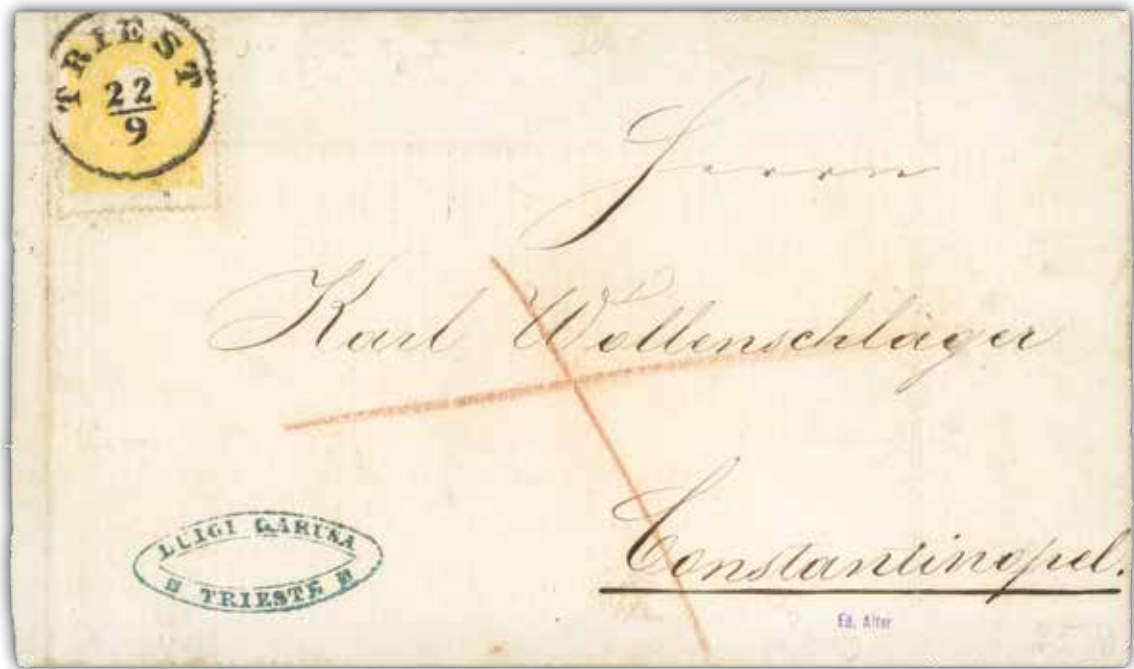 TRIEST
22
9
Herrn
Karl Wollenschläger
Constantinopel.
LUIGI GARUSA
TRIESTE
Ed. Alter